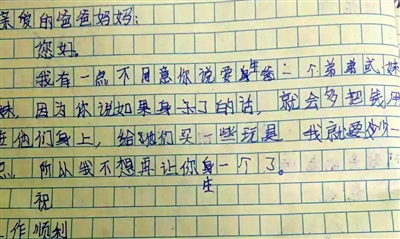 亲爱的爸爸妈妈:
您好。
我有一点不同意你说要身二个弟弟或妹
妹,因为你说如果身了的话,就会多把钱用
在他们身上,给他们买一些玩具 我就要少一
点 所以我不想再让你身一个了。
生
祝
工作顺利